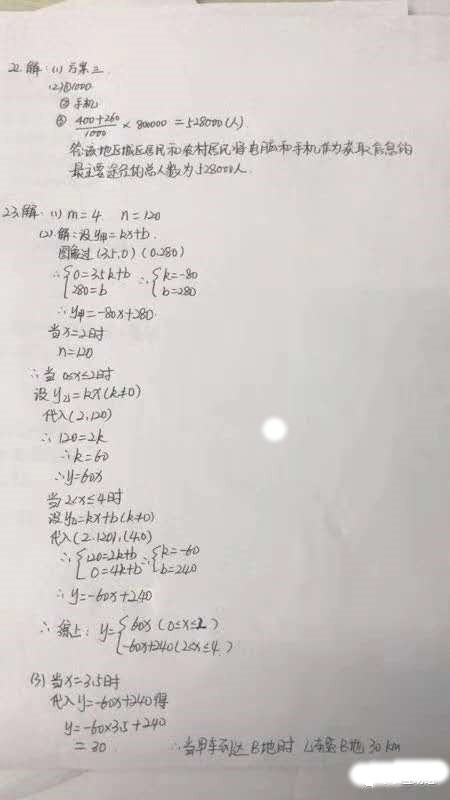 22. 解: (1) 方案三
(2) ①1000
② 手机
③ (400+260)/1000 × 800000 = 528000(人)
答该地区城区居民和农村居民将电脑和手机作为获取信息的
最主要途径的总人数为528000人.
23.解: (1) m=4 n=120
(2) 解:设y甲=kx+b.
图象过 (3.5,0) (0,280)
∴ {0=3.5k+b ∴ {k=-80
280=b b=280
∴ y甲=-80x+280.
当x=2时
n=120
∴ 当 0≤x≤2时
设 y乙=kx(k≠0)
代入(2,120)
∴ 120=2k
∴k=60
∴y=60x
当2<x≤4时
设y乙=kx+b(k≠0)
代入(2,120),(4,0)
∴ {120=2k+b ∴ {k=-60
0=4k+b b=240
∴ y=-60x+240
∴ 综上: y= {60x (0≤x≤2)
-60x+240(2≤x≤4)
(3) 当x=3.5时
代入y=-60x+240得
y=-60×3.5+240
=30 ∴当甲车到达B地时 乙车距B地 30 km